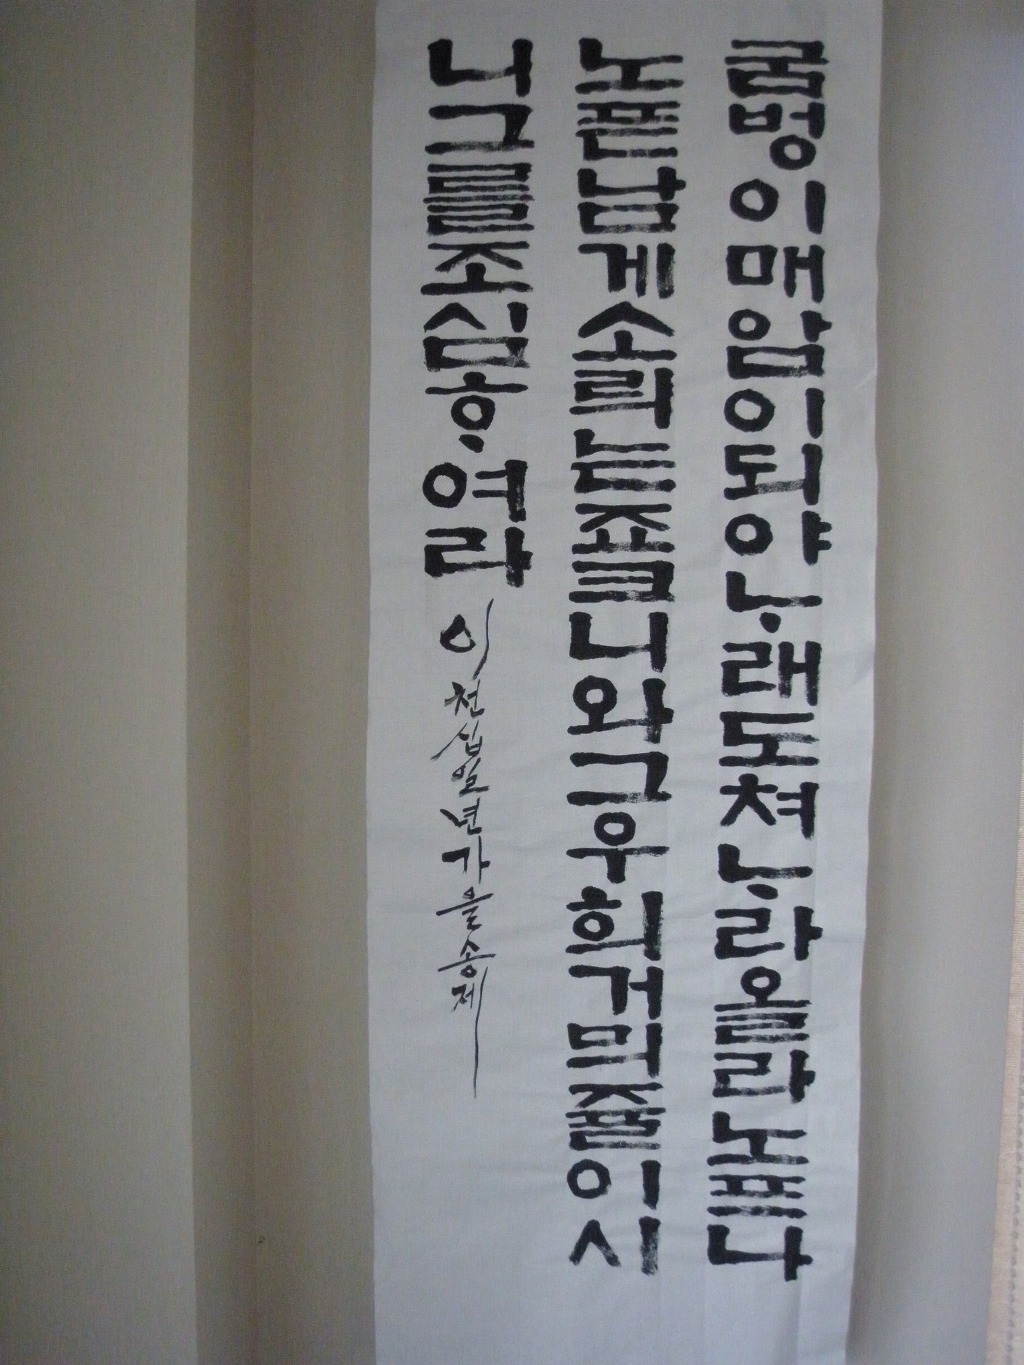 굼벙이매암이되야ᄂᆞ래도쳐ᄂᆞ라올라노프나
노픈남게소릐는죠크니와그우희거믜줄이시
니그를조심ᄒᆞ여라 이천십일년가을송제